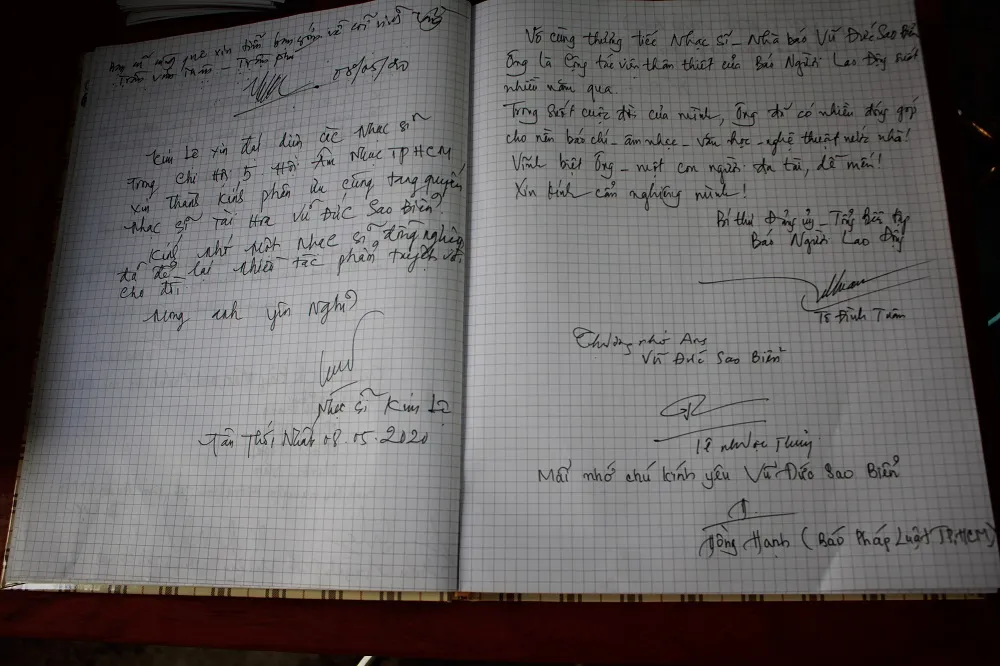 xin
08/05/20
Kim Lê xin đại diện các Nhạc sĩ
Trong Chi Hội 5 Hội Âm Nhạc TPHCM
xin Thành kính phân ưu cùng tang quyến
Nhạc sĩ Tài Hoa Vũ Đức Sao Biển
Kính nhớ một nhạc sĩ, đồng nghiệp
đã để lại nhiều tác phẩm tuyệt vời
cho đời
Mong anh yên Nghỉ
Nhạc sĩ Kim Lê
Tân Thới Nhất 08.05.2020
Vô cùng thương tiếc Nhạc sĩ - Nhà báo Vũ Đức Sao Biển
Ông là Cộng tác viên thân thiết của Báo Người Lao Động suốt
nhiều năm qua.
Trong suốt cuộc đời của mình, Ông đã có nhiều đóng góp
cho nền báo chí - âm nhạc - văn học - nghệ thuật nước nhà!
Vĩnh biệt Ông - một con người đa tài, dễ mến!
Xin kính cẩn nghiêng mình!
Bí thư Đảng ủy - Tổng Biên tập
Báo Người Lao Động
Tô Đình Tuân
Thương nhớ Anh
Vũ Đức Sao Biển
Mãi nhớ chú kính yêu Vũ Đức Sao Biển
Hồng Hạnh (Báo Pháp Luật TP.HCM)